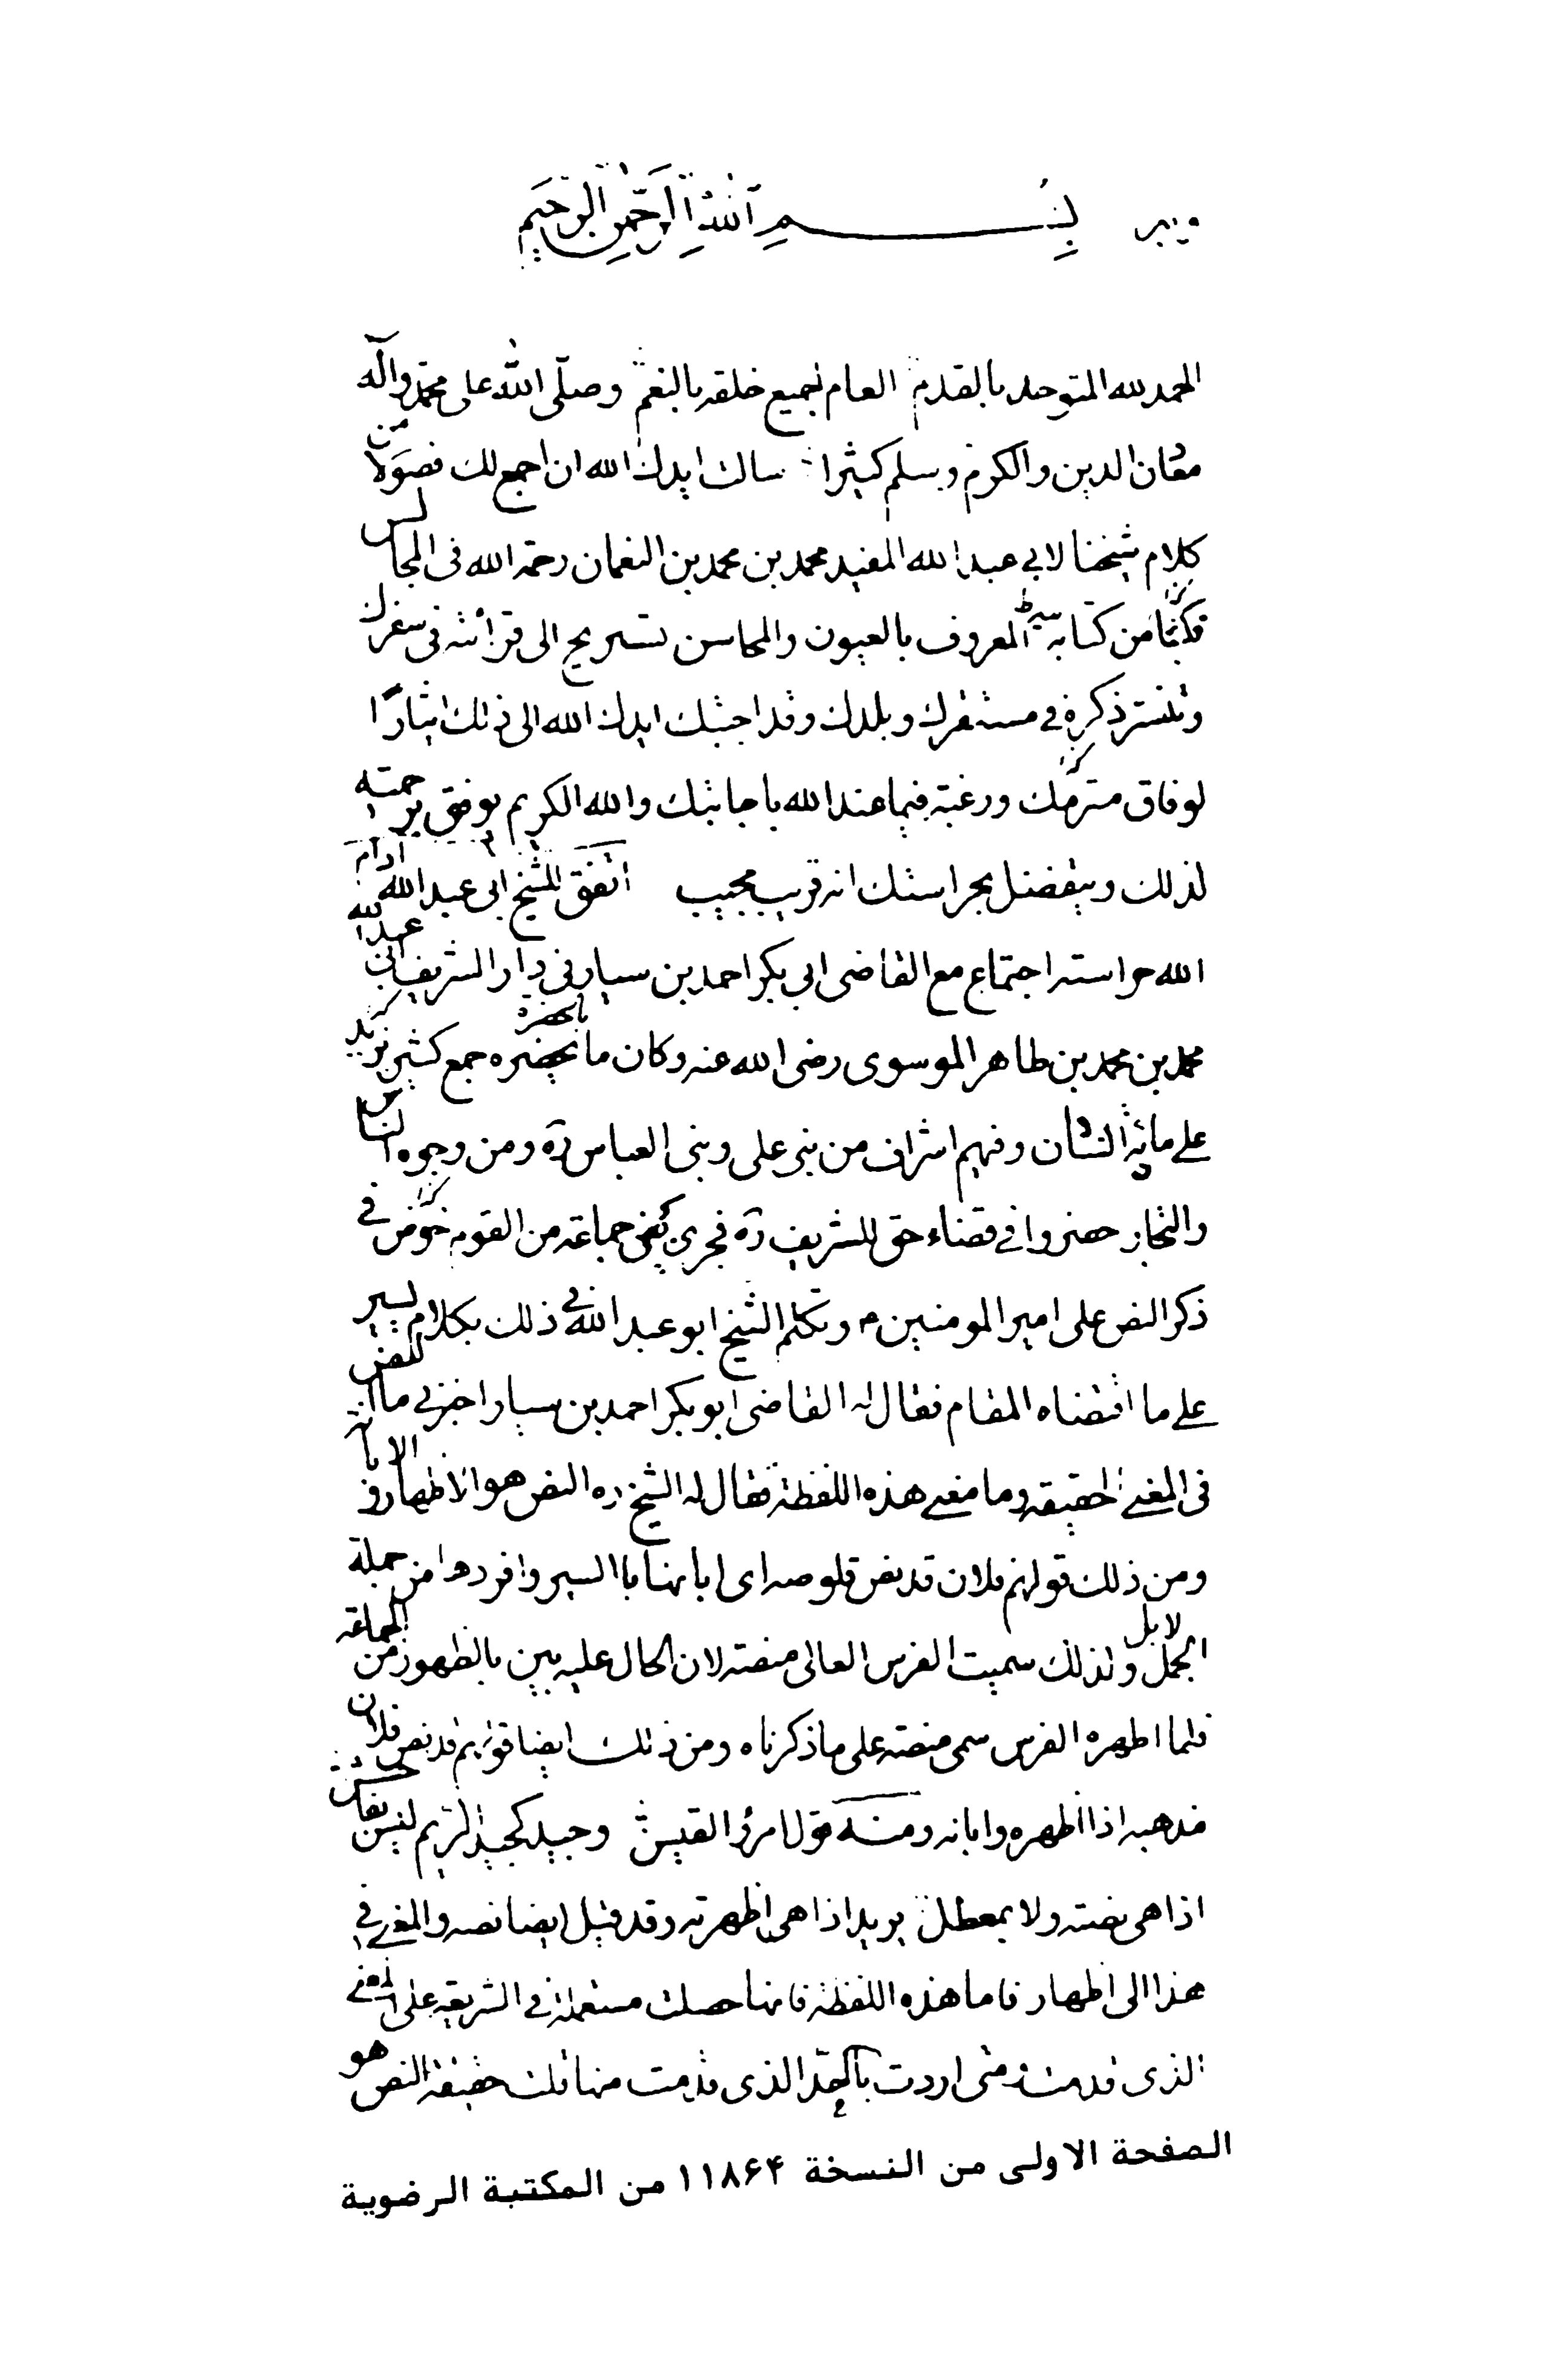 بسم الله الرحمن الرحيم
الحمد لله المتوحد بالقدم العام لجميع خلقه بالنعم وصلّى الله على محمد وآله
معادن الدين والكرم وسلم كثيرا سالت ايدك الله ان اجمع لك فصولا من
كلام شيخنا لابي عبد الله المفيد محمد بن محمد بن النعمان رحمة الله في المجالس
من كتابه المعروف بالعيون والمحاسن تستريح الى قرائته في سفرك
وتنشر ذكره في مستقرك وبلدك وقد اجبتك ايدك الله الى ذلك ايثارًا
لوفاق مسرتك ورغبة فيما عند الله باجابتك والله الكريم يوفق برحمته
لذلك ويتفضل بحراستك انه قريب مجيب اتفق للشيخ ابى عبد الله ادام
الله حراسته اجتماع مع القاضى ابي بكر احمد بن سيار في دار الشريف ابي عبد الله
محمد بن محمد بن طاهر الموسوى رضى الله عنه وكان بالحضرة جمع كثير يزيد
على مائة انسان وفيهم اشراف من بنى على وبنى العباس ره ومن وجوه الناس
والتجار حضروا في قضاء حق للشريف ره فجرى جماعة من القوم خوض في
ذكر النص على امير المومنين ع وتكلم الشيخ ابو عبد الله في ذلك بكلام يسير
على ما اقتضاه المقام فقال له القاضى ابو بكر احمد بن سيار اخبرني ما النص
في المعنى الحقيقه وما معنى هذه اللفظة فقال له الشيخ ره النص هو الاظهار والابانة
ومن ذلك قولهم فلان قد نص قلوصه اى ابانها باالسير وافردها من جملة
الابل ولذلك سميت الفرس العالى منصته لان الحال عليه يبين بالظهور من الجماعة
فلما اظهره الفرس سمى منصته على ما ذكرناه ومن ذلك ايضا قولهم قد نص فلان
مذهبه اذا اظهره وابانه ومنه قول امرؤ القيس وجيد كجيد الريم ليس بفاحش
اذا هى نصته ولا بمعطل يريد اذا هى اظهرته وقد قيل ايضا نصه والمعنى في
هذا الى اظهار فاما هذه اللفظة فانها حصلت مستعملة في الشريعة على المعنى
الذى قدمت ومتى اردت بالحد الذى قدمت منها قلت حقيقة النص هو
الصفحة الاولى من النسخة ۱۱۸۶۴ من المكتبة الرضوية